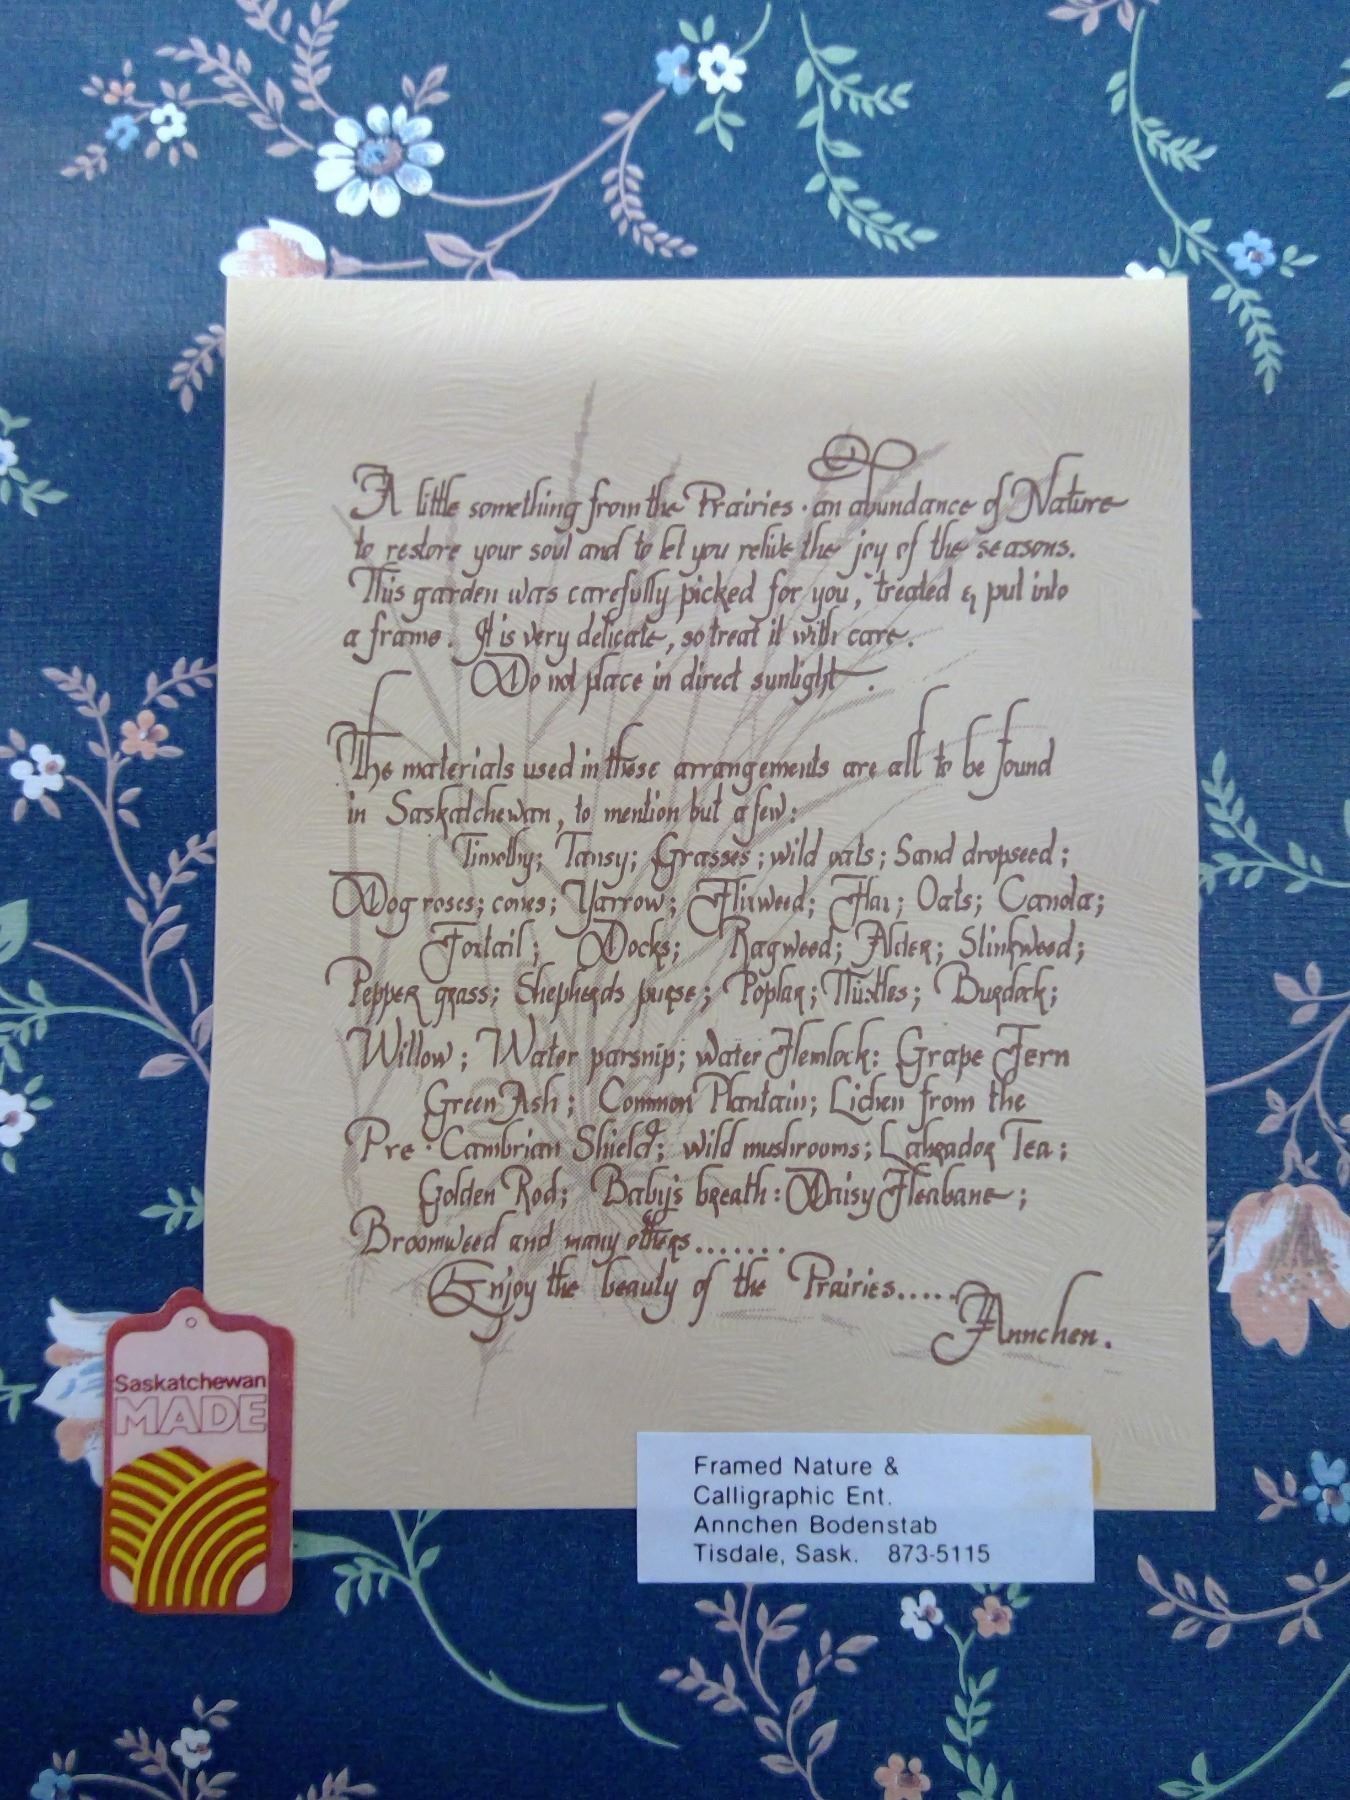 A little something from the Prairies · an abundance of Nature
to restore your soul and to let you relive the joy of the seasons.
This garden was carefully picked for you, treated & put into
a frame. It is very delicate, so treat it with care.
Do not place in direct sunlight.
The materials used in these arrangements are all to be found
in Saskatchewan, to mention but a few:
Timothy; Tansy; Grasses; wild oats; Sand dropseed;
Dog roses; cones; Yarrow; Flixweed; Flax; Oats; Canola;
Foxtail; Docks; Ragweed; Alder; Stinkweed;
Pepper grass; Shepherds purse; Poplar; Thistles; Burdock;
Willow; Water parsnip; water Hemlock: Grape Fern
Green Ash; Common Plantain; Lichen from the
Pre·Cambrian Shield; wild mushrooms; Labrador Tea;
Golden Rod; Baby's breath: Daisy Fleabane;
Broomweed and many others.......
Enjoy the beauty of the Prairies.....
Annchen.
Saskatchewan
MADE
Framed Nature &
Calligraphic Ent.
Annchen Bodenstab
Tisdale, Sask. 873-5115